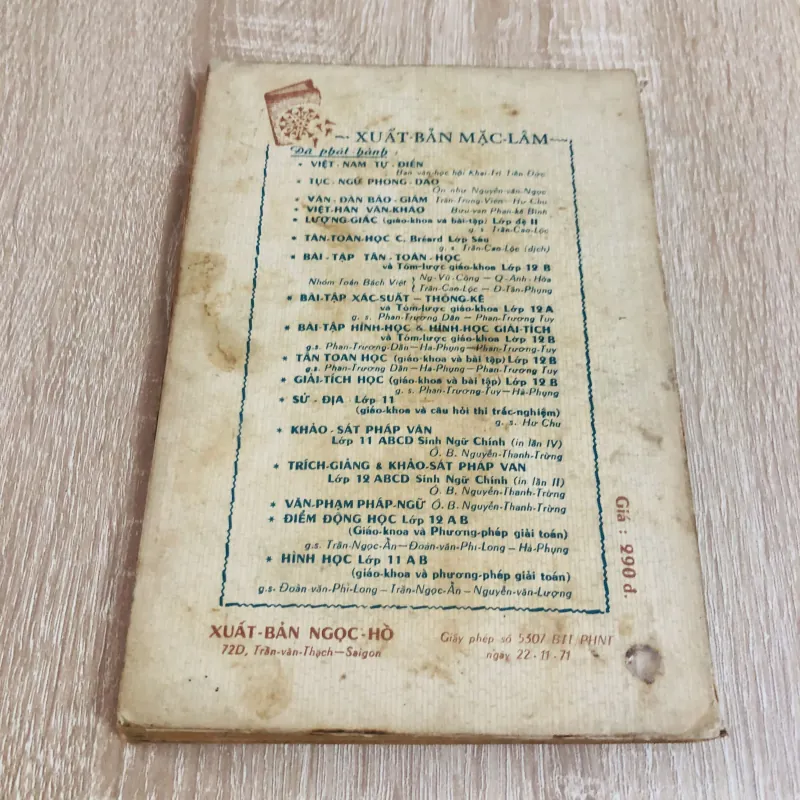 XUẤT-BẢN MẶC-LÂM
Đã phát hành :
* VIỆT-NAM TỰ-ĐIỂN
Ban văn-học hội Khai-Trí Tiến Đức
* TỤC-NGỮ PHONG-DAO
Ôn như Nguyễn-văn-Ngọc
* VĂN-ĐÀN BẢO-GIÁM Trần-Trung-Viên — Hư Chu
* VIỆT-HÁN VĂN-KHẢO Bưu-văn Phan-kế Bính
* LƯỢNG-GIÁC (giáo-khoa và bài-tập) Lớp đệ II
g. s Trần-Cao-Lộc
* TÂN-TOÁN-HỌC C. Bréard Lớp Sáu
g. s Trần-Cao-Lộc (dịch)
* BÀI-TẬP TÂN-TOÁN-HỌC
và Tóm-lược giáo-khoa Lớp 12 B
Nhóm Toán Bách Việt { Ng-Vũ-Công — Q-Anh-Hòa
Trần-Cao-Lộc — Đ-Tấn-Phụng
* BÀI-TẬP XÁC-SUẤT — THỐNG-KÊ
và Tóm-lược giáo-khoa Lớp 12 A
g. s. Phan-Trương Dần — Phan-Trương Tuy
* BÀI-TẬP HÌNH-HỌC & HÌNH-HỌC GIẢI-TÍCH
và Tóm-lược giáo-khoa Lớp 12 B
g.s. Phan-Trương-Dần—Hà-Phụng—Phan-Trương-Tuy
* TÂN TOÁN HỌC (giáo-khoa và bài tập) Lớp 12 B
g.s. Phan-Trương Dần — Hà-Phụng — Phan-Trương Tuy
* GIẢI-TÍCH HỌC (giáo-khoa và bài tập) Lớp 12 B
g. s. Phan-Trương-Tuy—Hà-Phụng
* SỬ - ĐỊA Lớp 11
(giáo-khoa và câu hỏi thi trắc-nghiệm)
g. s. Hư Chu
* KHẢO-SÁT PHÁP VĂN
Lớp 11 ABCD Sinh Ngữ Chính (in lần IV)
Ô. B. Nguyễn-Thanh-Trừng
* TRÍCH-GIẢNG & KHẢO-SÁT PHÁP VĂN
Lớp 12 ABCD Sinh Ngữ Chính (in lần II)
Ô. B. Nguyễn-Thanh-Trừng
* VĂN-PHẠM PHÁP-NGỮ Ô. B. Nguyễn-Thanh-Trừng
* ĐIỂM ĐỘNG HỌC Lớp 12 A B
(Giáo-khoa và Phương-pháp giải toán)
g.s. Trần-Ngọc-Ẩn—Đoàn-văn-Phi-Long — Hà-Phụng
* HÌNH HỌC Lớp 11 A B
(giáo-khoa và phương-pháp giải toán)
g.s. Đoàn văn-Phi-Long — Trần-Ngọc-Ẩn — Nguyễn-văn-Lượng
Giá : 290 đ.
XUẤT-BẢN NGỌC-HỒ
72D, Trần-văn-Thạch—Saigon
Giấy phép số 5307 BTT PHNT
ngày 22-11-71